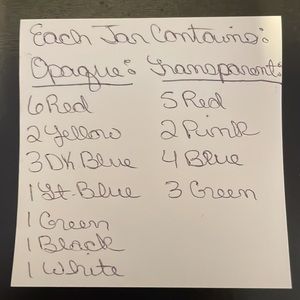 Each Jar Contains:
Opaque: Transparent:
6 Red 5 Red
2 Yellow 2 Pink
3 DK Blue 4 Blue
1 Lt-Blue 3 Green
1 Green
1 Black
1 White